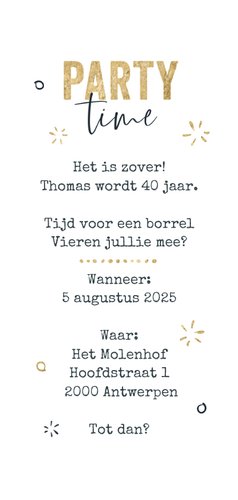 PARTY
time
Het is zover!
Thomas wordt 40 jaar.
Tijd voor een borrel
Vieren jullie mee?
Wanneer:
5 augustus 2025
Waar:
Het Molenhof
Hoofdstraat 1
2000 Antwerpen
Tot dan?